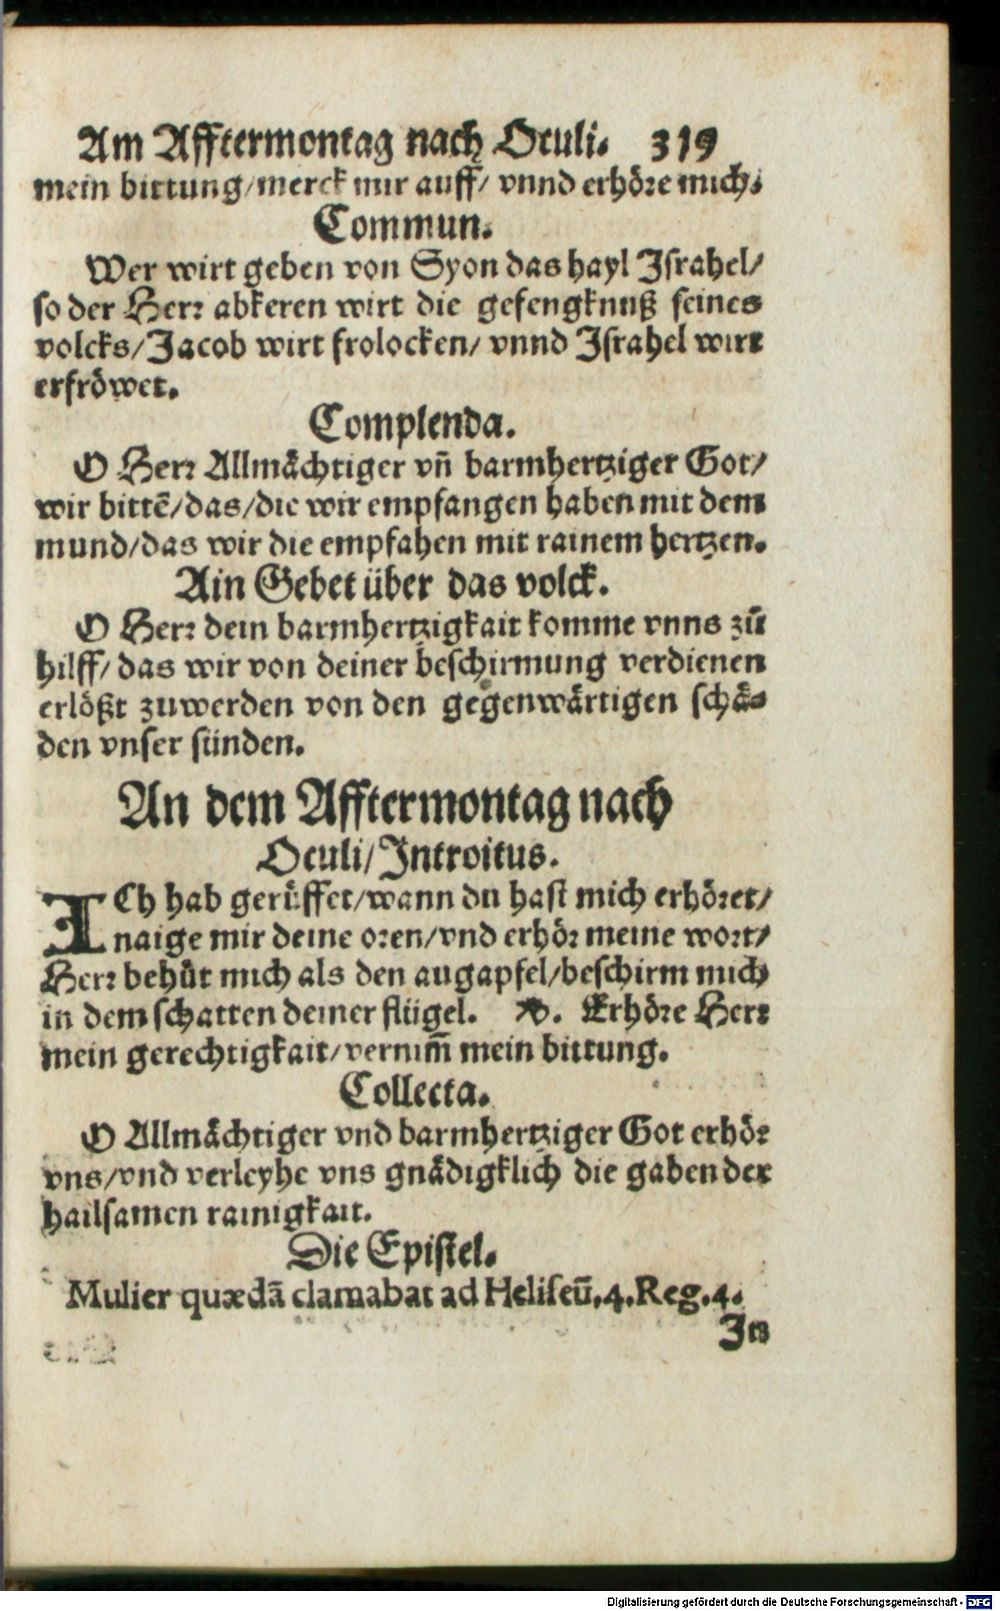 Am Afftermontag nach Oculi. 319
mein bittung/merck mir auff/ vnnd erhöre mich.
Commun.
Wer wirt geben von Syon das hayl Israhel/
so der Herr abkeren wirt die gefengknuß seines
volcks/Jacob wirt frolocken/ vnnd Israhel wirt
erfröwet.
Complenda.
O Herr Allmächtiger vñ barmhertziger Got/
wir bittē/das/die wir empfangen haben mit dem
mund/das wir die empfahen mit rainem hertzen.
Ain Gebet über das volck.
O Herr dein barmhertzigkait komme vnns zů
hilff/das wir von deiner beschirmung verdienen
erlößt zuwerden von den gegenwärtigen schä-
den vnser sünden.
An dem Afftermontag nach
Oculi/Introitus.
ICh hab gerůffet/wann du hast mich erhöret/
naige mir deine oren/vnd erhör meine wort/
Herr behůt mich als den augapfel/beschirm mich
in dem schatten deiner flügel. V. Erhöre Herr
mein gerechtigkait/vernim̄ mein bittung.
Collecta.
O Allmächtiger vnd barmhertziger Got erhör
vns/vnd verleyhe vns gnädigklich die gaben der
hailsamen rainigkait.
Die Epistel.
Mulier quædā clamabat ad Heliseū.4.Reg.4.
In
Digitalisierung gefördert durch die Deutsche Forschungsgemeinschaft - DFG